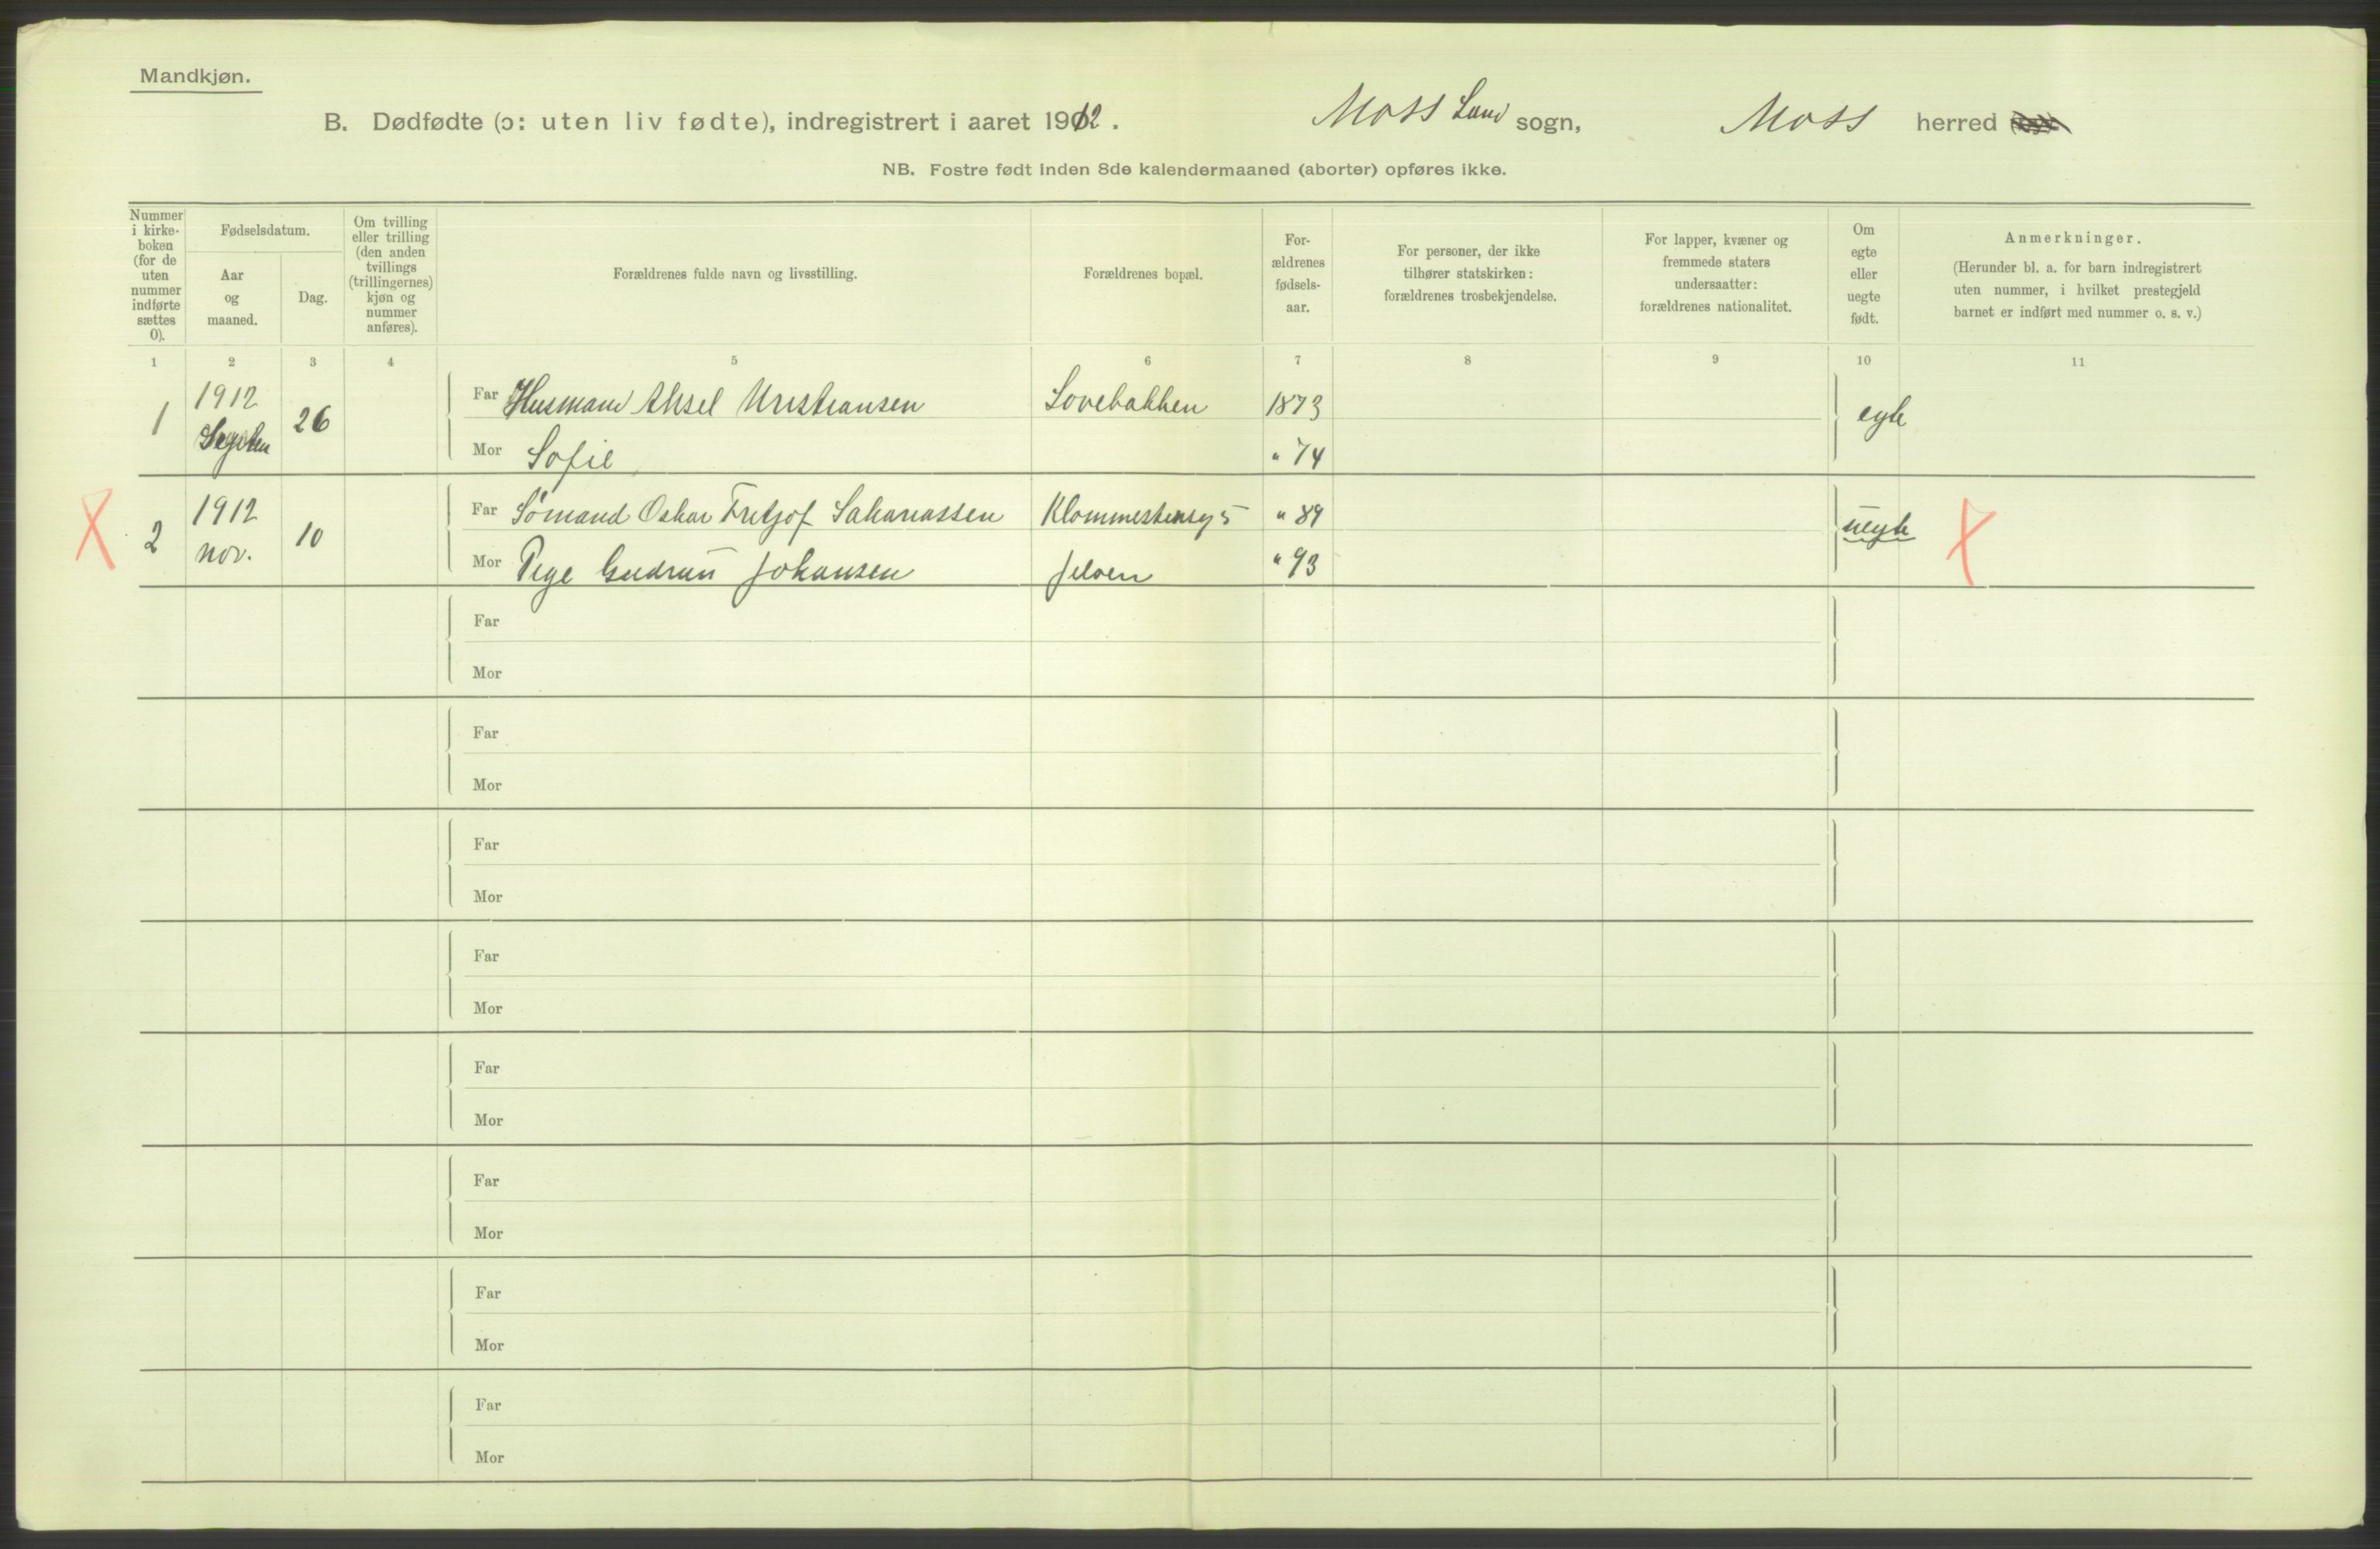 Mandkjøn.
B. Dødfødte (ɔ: uten liv fødte), indregistrert i aaret 1912. Moss Land sogn, Moss herred
NB. Fostre født inden 8de kalendermaaned (aborter) opføres ikke.
Nummer
i kirke-
boken
(for de
uten
nummer
indførte
sættes
0).
Fødselsdatum.
Aar
og
maaned.
Dag.
Om tvilling
eller trilling
(den anden
tvillings
(trillingernes)
kjøn og
nummer
anføres).
Forældrenes fulde navn og livsstilling.
Forældrenes bopæl.
For-
ældrenes
fødsels-
aar.
For personer, der ikke
tilhører statskirken:
forældrenes trosbekjendelse.
For lapper, kvæner og
fremmede staters
undersaatter:
forældrenes nationalitet.
Om
egte
eller
uegte
født.
Anmerkninger.
(Herunder bl. a. for barn indregistrert
uten nummer, i hvilket prestegjeld
barnet er indført med nummer o. s. v.)
1 2 3 4 5 6 7 8 9 10 11
1 1912 26 Far Husmand Aksel Kristiansen 1873 egte
Mor Sofie " 74
2 1912 10 Far Sømand Oskar Fritjof Sakariassen " 89 uegte
nov. Mor Gudrun Johansen Jeløen " 93
Far
Mor
Far
Mor
Far
Mor
Far
Mor
Far
Mor
Far
Mor
Far
Mor
Far
Mor